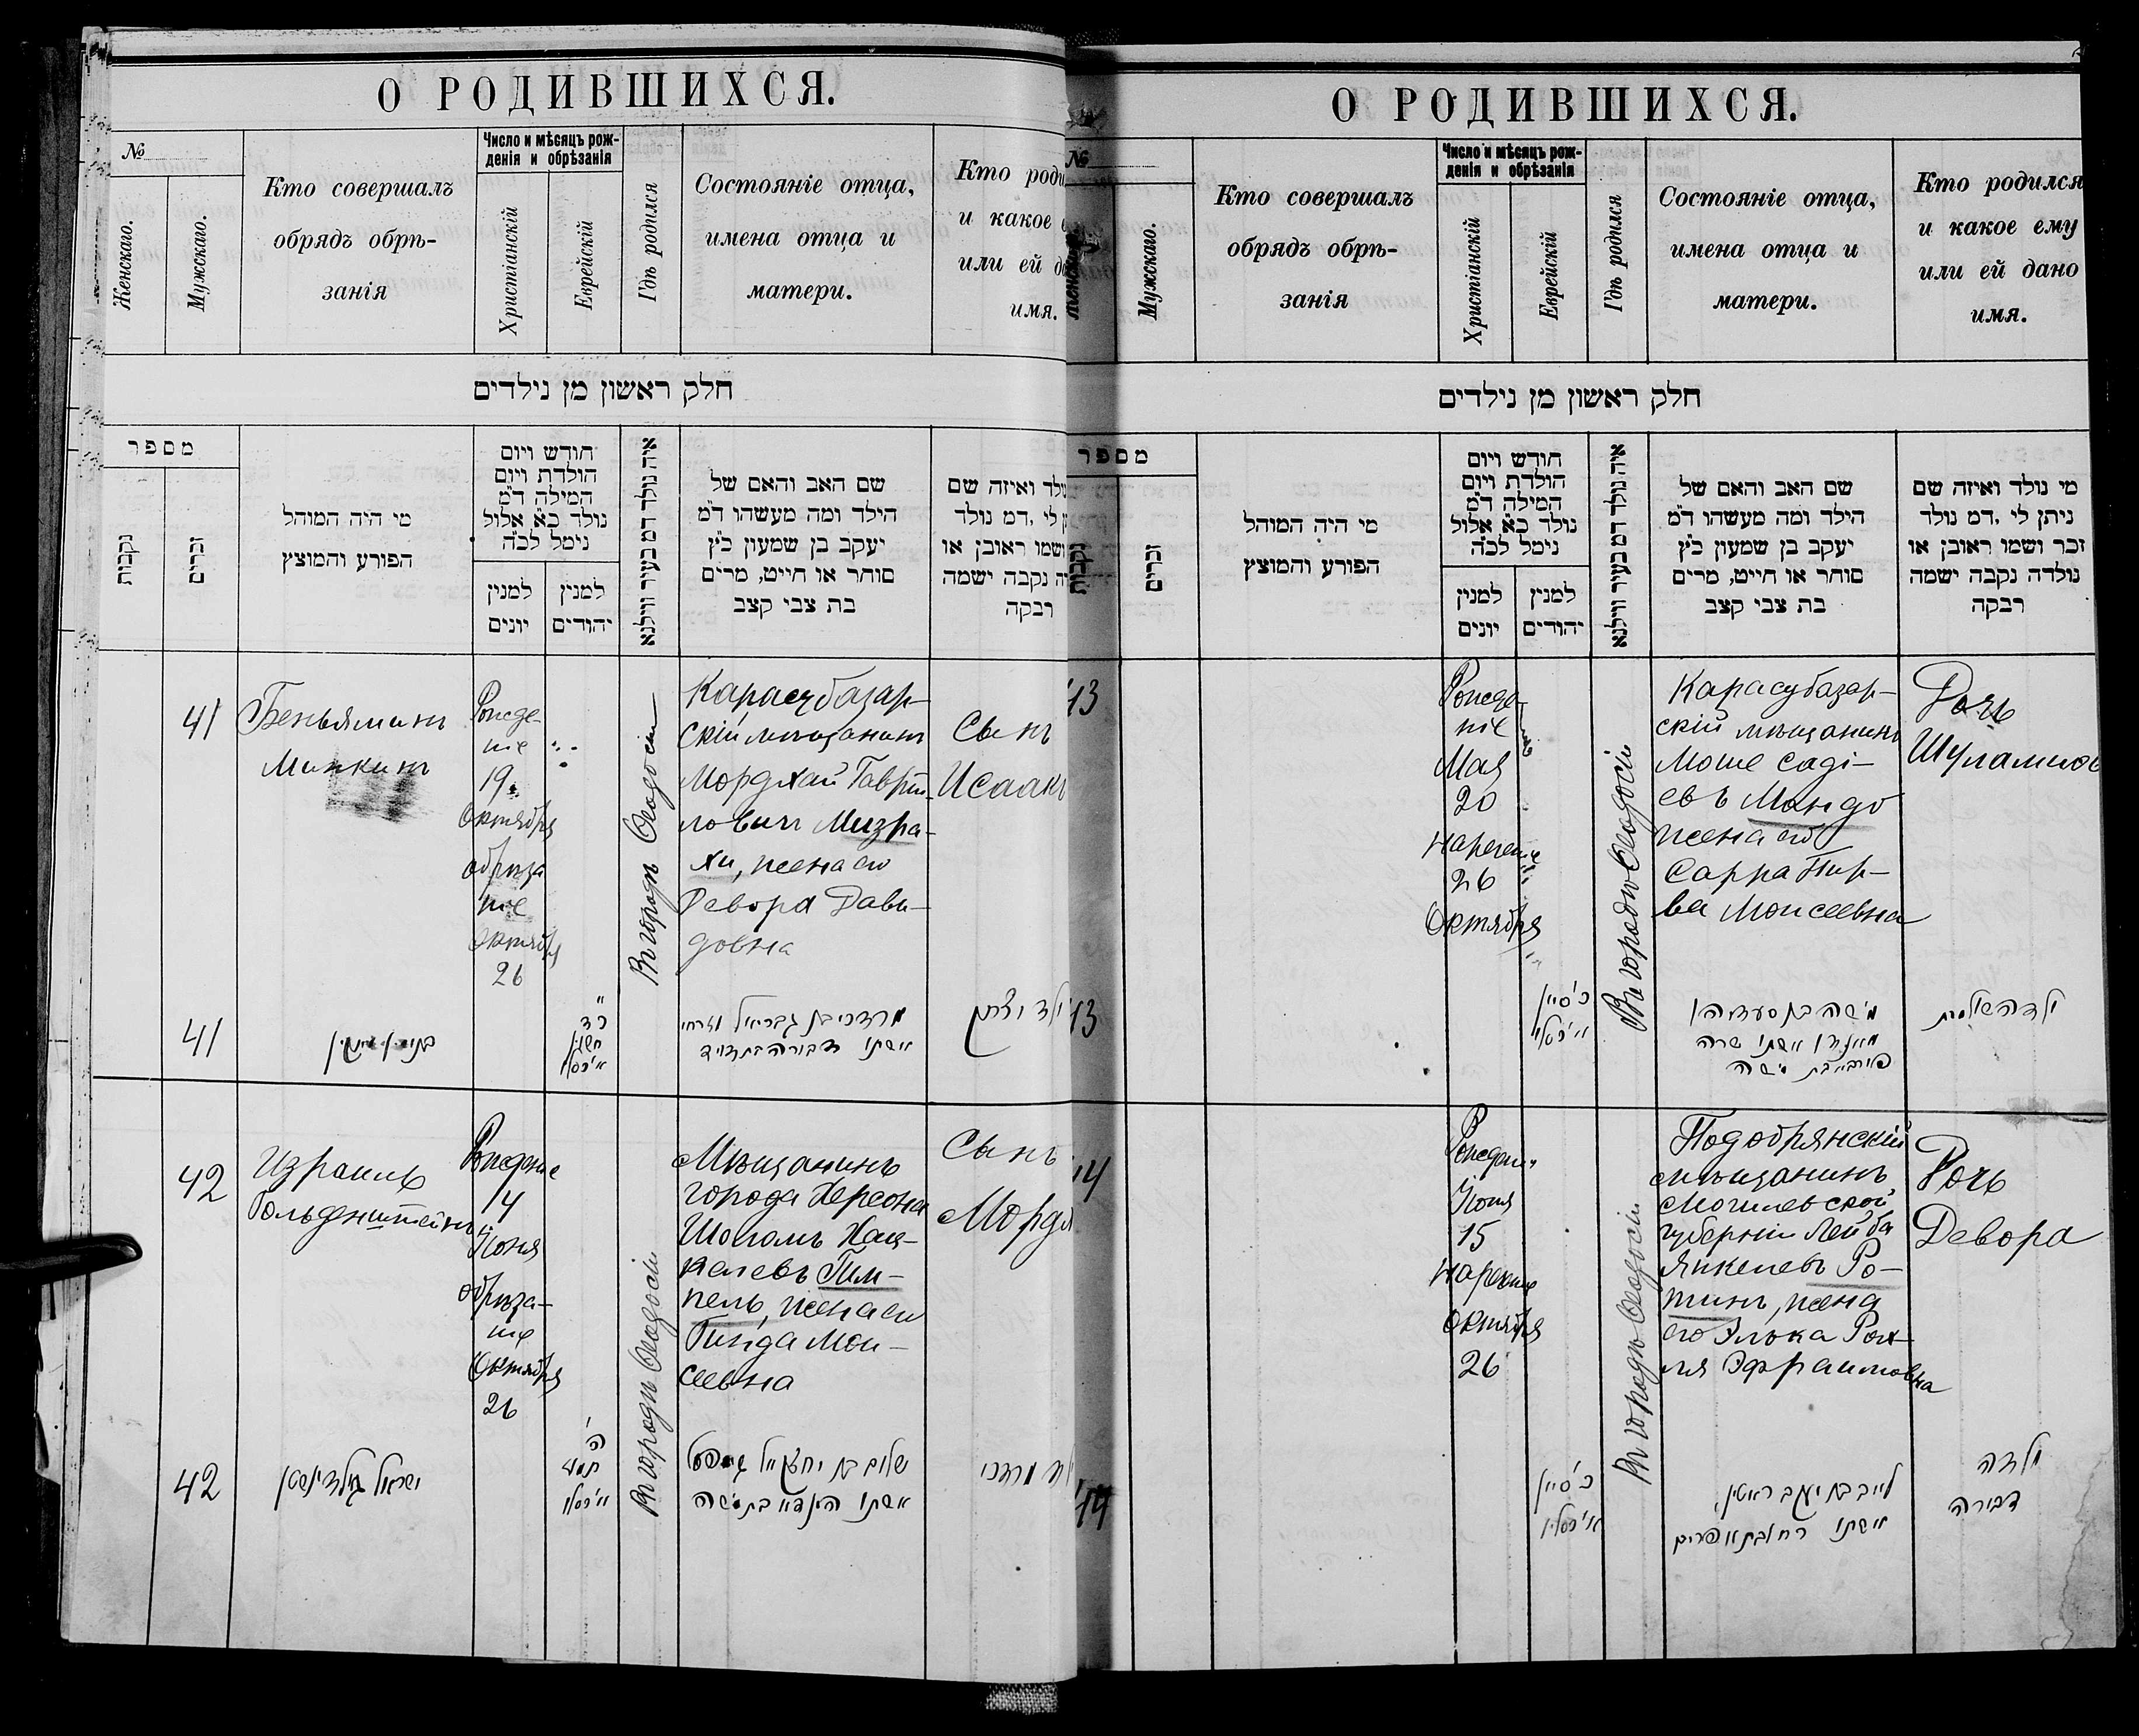 О РОДИВШИХСЯ.
№
Женскаго.
Мужскаго.
Кто совершалъ
обрядъ обрѣ-
занія
Число и мѣсяцъ рож-
денія и обрѣзанія
Христіанскій
Еврейскій
Гдѣ родился
Состояніе отца,
имена отца и
матери.
Кто роди
и какое
или ей
имя.
חלק ראשון מן נילדים
מספר
נקבות
זכרים
מי היה המוהל
הפורע והמוצץ
חודש ויום
הולדת ויום
המילה ד״מ
נולד כ״א אלול
נימל לכ״ה
למנין
יונים
למנין
יהודים
איה נולד דמ בעיר ווילנא
שם האב והאם של
הילד ומה מעשהו ד״מ
יעקב בן שמעון כ״ץ
סוחר או חייט, מרים
בת צבי קצב
נולד ואיזה שם
לי ,דמ נולד
ושמו ראובן או
נקבה ישמה
רבקה
41
Беньяминъ
Минкинъ
Рожде-
ніе
19
Октября
обрѣза
ніе
Октября
26
Въ городѣ Ѳеодосіи
Карасубазар-
скій мѣщанинъ
Мордхай Гаврі-
ловичъ Мизра-
хи, жена его
Девора Дави-
довна
Сынъ
Исаакъ
41
כד
חשון
מרדכי בן גבריאל מזרחי
אשתו דבורה בת דויד
ילד יצחק
42
Израиль
Гольденштейнъ
Рожденіе
14
Іюня
обрѣза-
ніе
Октября
26
Въ городѣ Ѳеодосіи
Мѣщанинъ
города Херсона
Шоломъ Хац-
келевъ Гим-
пель, жена его
Гинда Мои-
сеевна
Сынъ
Мордх
42
ישראל גאלדינשטיין
ה׳
תמוז
שלום בן יחזקאל גימפעל
אשתו הינדא בת משה
מרדכי
О РОДИВШИХСЯ.
№
Мужскаго.
Кто совершалъ
обрядъ обрѣ-
занія
Число и мѣсяцъ рож-
денія и обрѣзанія
Христіанскій
Еврейскій
Гдѣ родился
Состояніе отца,
имена отца и
матери.
Кто родился
и какое ему
или ей дано
имя.
חלק ראשון מן נילדים
מספר
נקבות
זכרים
מי היה המוהל
הפורע והמוצץ
חודש ויום
הולדת ויום
המילה ד״מ
נולד כ״א אלול
נימל לכ״ה
למנין
יונים
למנין
יהודים
איה נולד דמ בעיר ווילנא
שם האב והאם של
הילד ומה מעשהו ד״מ
יעקב בן שמעון כ״ץ
סוחר או חייט, מרים
בת צבי קצב
מי נולד ואיזה שם
ניתן לי ,דמ נולד
זכר ושמו ראובן או
נולדה נקבה ישמה
רבקה
13
Рожде
ніе
Мая
20
Нареченіе
26
Октября
Въ городѣ Ѳеодосіи
Карасубазар-
скій мѣщанинъ
Моше Саді-
евъ Мандо
жена его
Сарра Пир-
ва Моисеевна
Дочь
Шуламиѳь
13
כ׳ סיון
משה בן סעדיה
מאנדו אשתו שרה
בת משה
ילדה שולמית
14
Рожден.
Іюня
15
Нареченіе
Октября
26
Въ городѣ Ѳеодосіи
Подобрянскій
мѣщанинъ
Могилевской
губерніи Лейба
Янкелевъ Ро-
тинъ, жена
его Элька Рох-
ля Эфраимовна
Дочь
Девора
14
כ׳ סיון
לייב בן יעקב ראטין
אשתו רחל בת אפרים
ילדה
דבורה